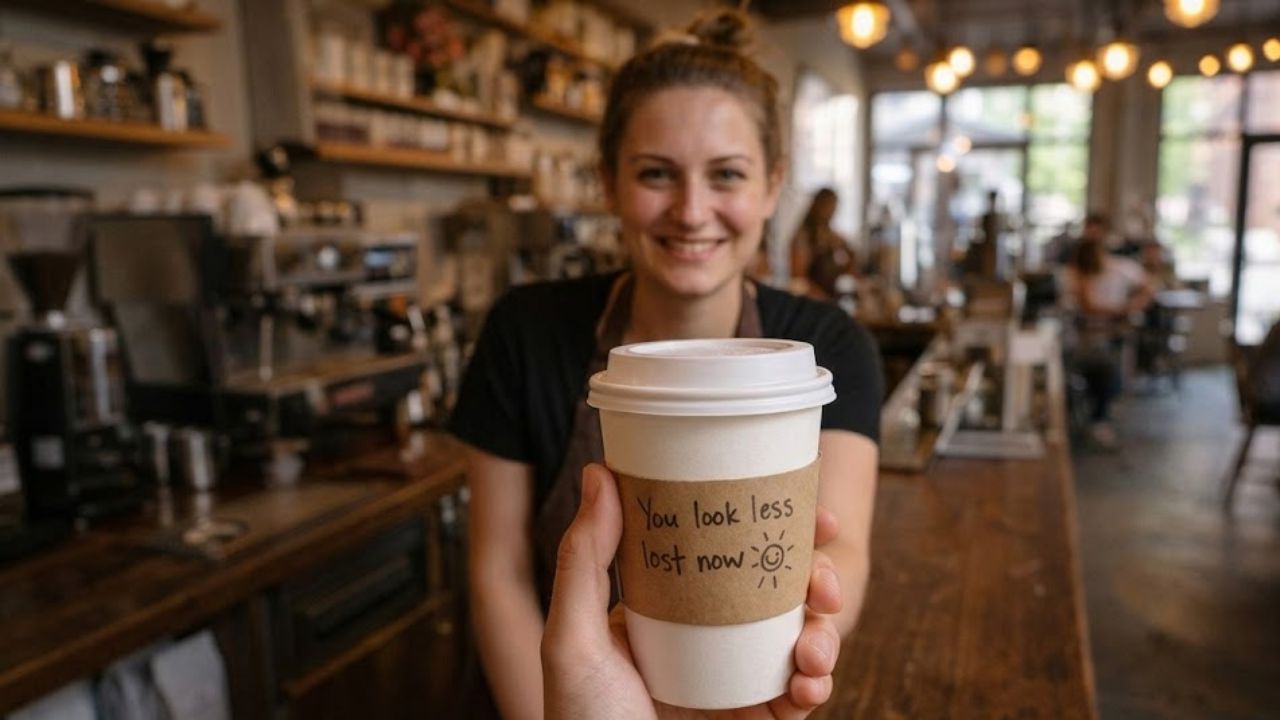 You look less
lost now